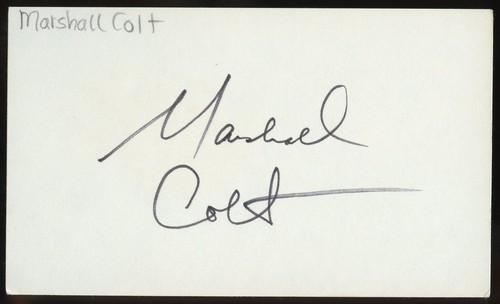 Marshall Colt
Marshall
Colt